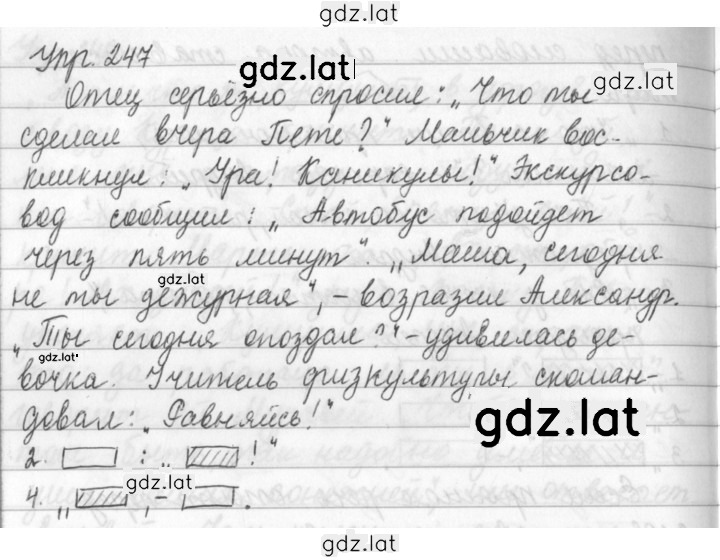 gdz.lat
Упр. 247
gdz.lat
Отец серьёзно спросил: „Что ты
сделал вчера Пете?“ Мальчик вос-
кликнул: „Ура! Каникулы!“ Экскурсо-
вод сообщил: „Автобус подойдет
через пять минут“. „Маша, сегодня
gdz.lat
не ты дежурная“, – возразил Александр.
„Ты сегодня опоздал?“ – удивилась де-
gdz.lat
вочка. Учитель физкультуры скоман-
довал: „Равняйсь!“
gdz.lat
2. : „ !“
4. „ , – .
gdz.lat
gdz.lat